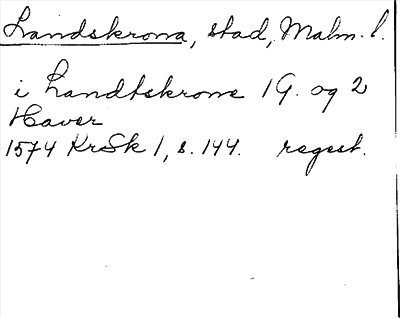 Landskrona, stad, Malm. l.
i Landtskrone 1 G. og 2
Haver
1574 KrSk 1, s. 144. regest.